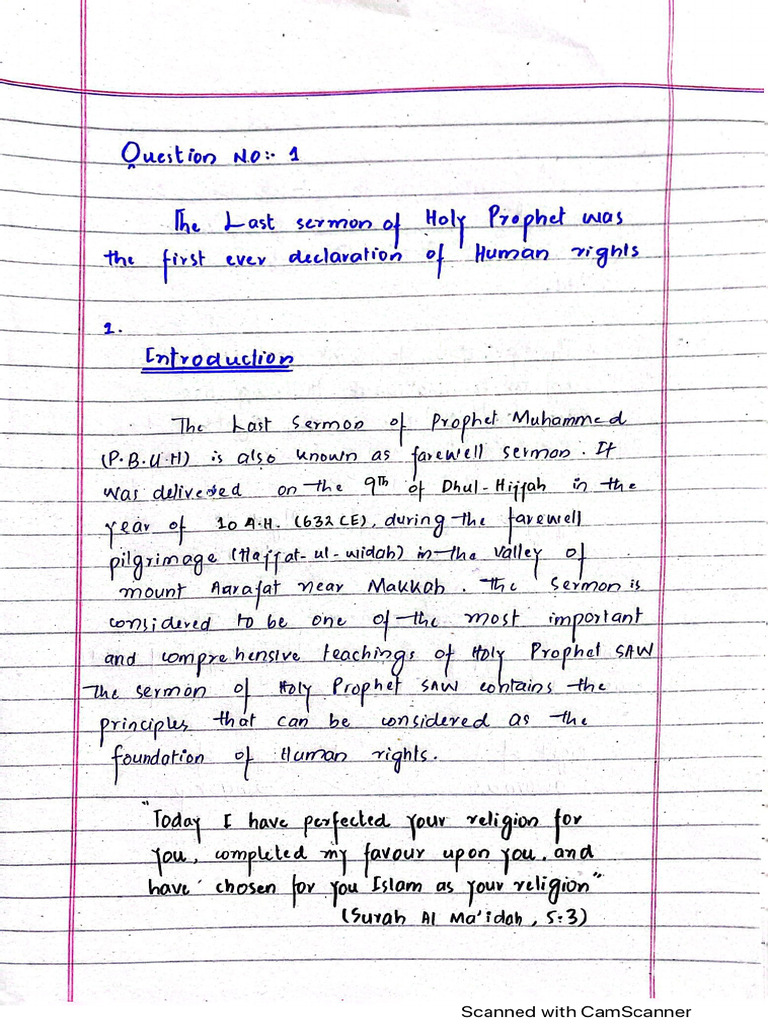 Question No:- 1
The Last sermon of Holy Prophet was
the first ever declaration of Human rights
1.
Introduction
The Last Sermon of Prophet Muhammed
(P.B.U.H) is also known as farewell sermon. It
was delivered on the 9th of Dhul-Hijjah in the
year of 10 A.H. (632 CE), during the farewell
pilgrimage (Hajjat-ul-widah) in the valley of
mount Aarafat near Makkah. The Sermon is
considered to be one of the most important
and comprehensive teachings of Holy Prophet SAW
The sermon of Holy Prophet SAW contains the
principles that can be considered as the
foundation of Human rights.
"Today I have perfected your religion for
you, completed my favour upon you, and
have chosen for you Islam as your religion"
(Surah Al Ma'idah, 5:3)
Scanned with CamScanner